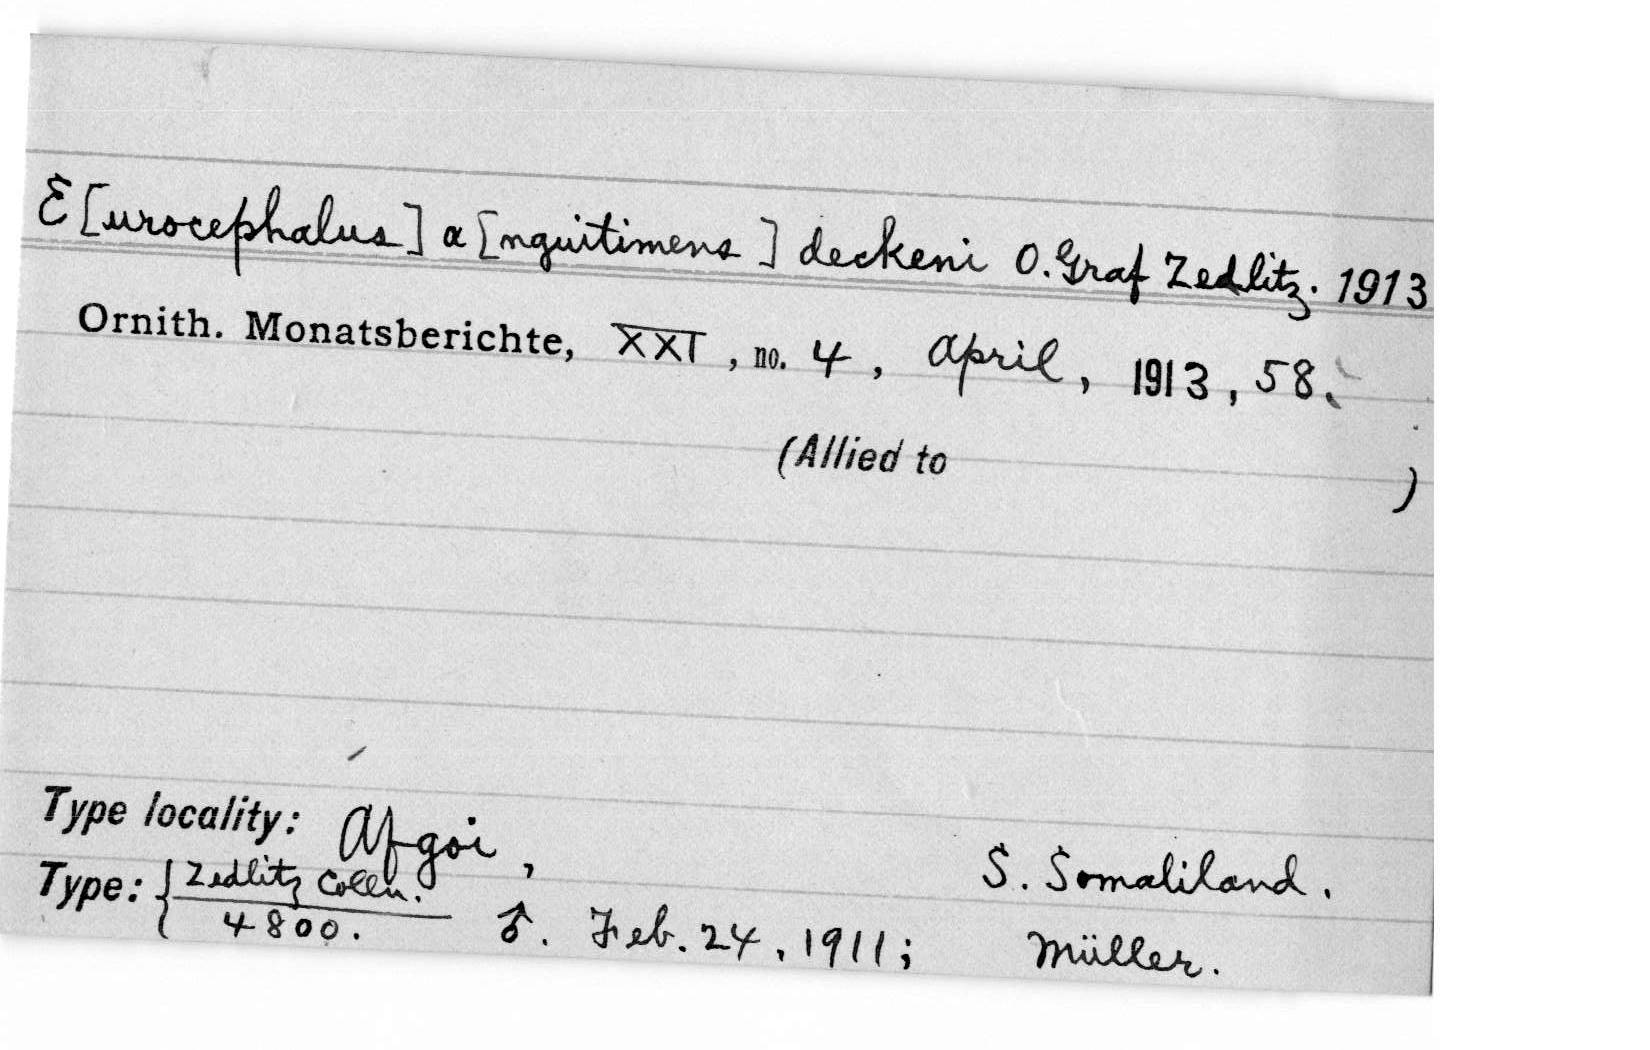 E[urocephalus] a[nguitimens] deckeni O. Graf Zedlitz. 1913
Ornith. Monatsberichte, XXI, no. 4, April, 1913, 58.
(Allied to )
Type locality: Afgoi, S. Somaliland.
Type: { Zedlitz Colln.
4800. ♂. Feb. 24, 1911; Müller.